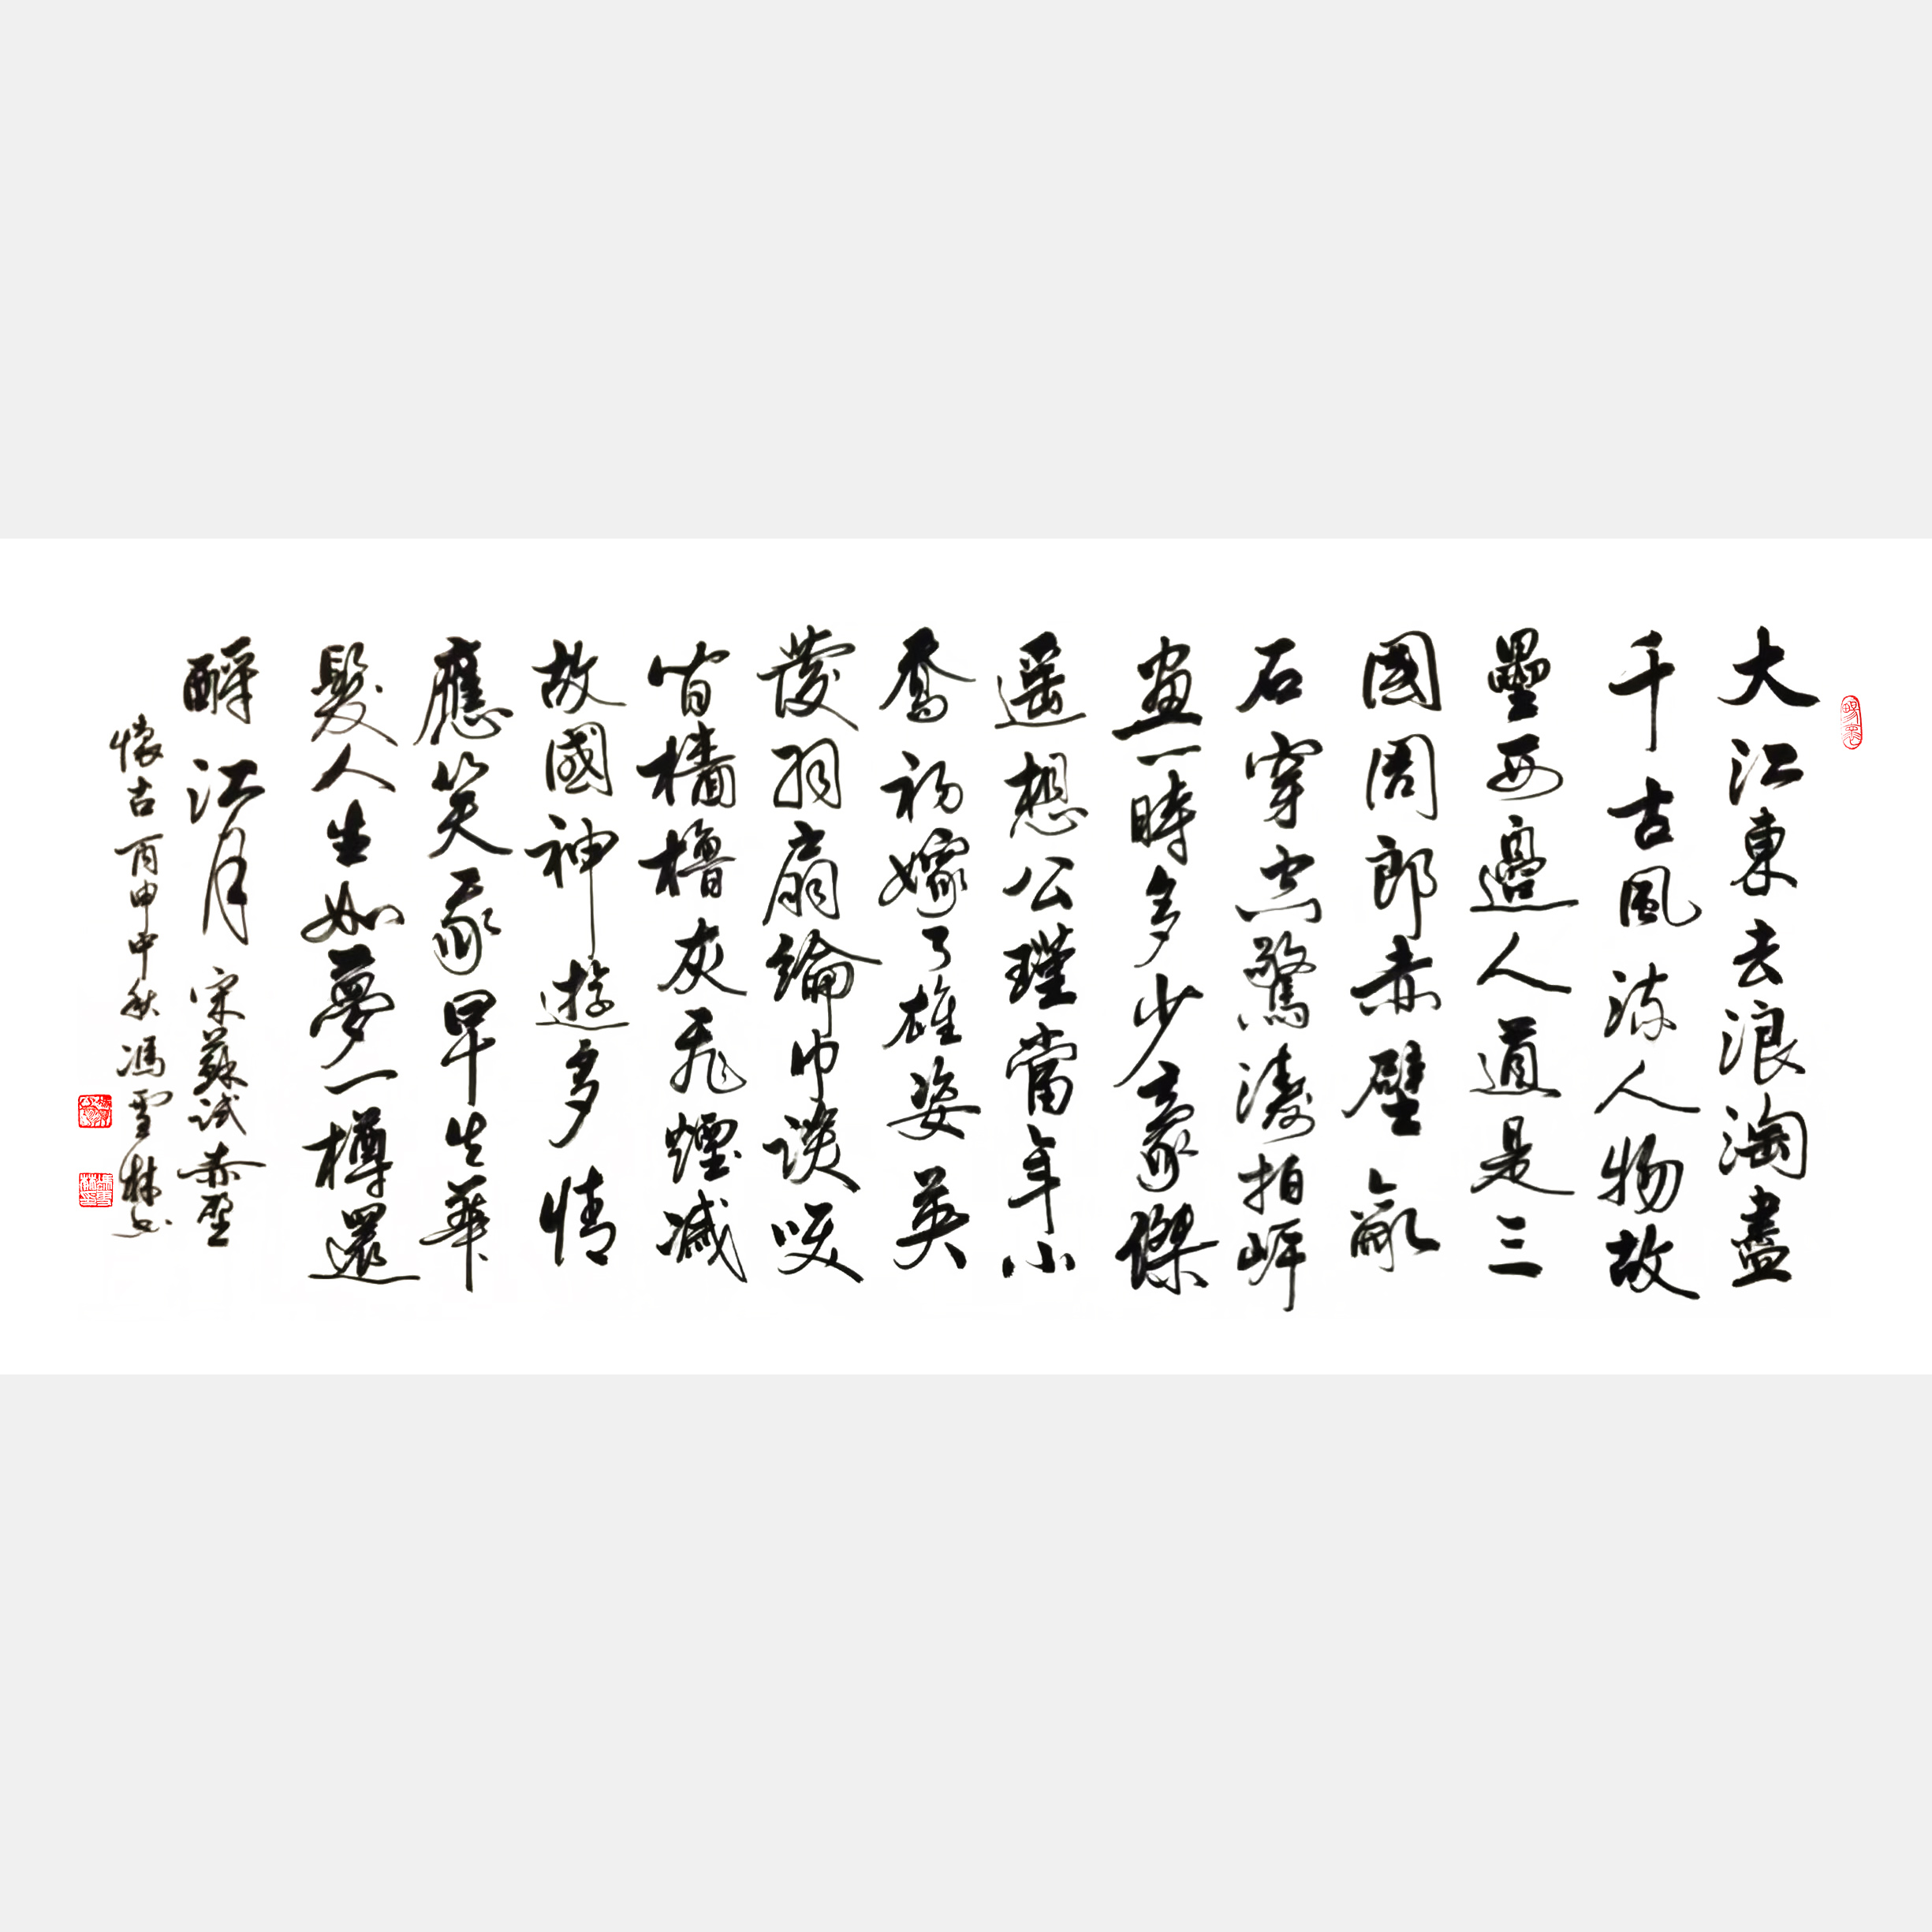 大江東去浪淘盡
千古風流人物故
壘西邊人道是三
國周郎赤壁亂
石穿空驚濤拍岸
畫一時多少豪傑
遥想公瑾當年小
喬初嫁了雄姿英
發羽扇綸巾談咲
間檣櫓灰飛煙滅
故國神遊多情
應笑我早生華
髮人生如夢一樽還
酹江月 宋蘇軾赤壁
懷古丙申中秋馮雪林書